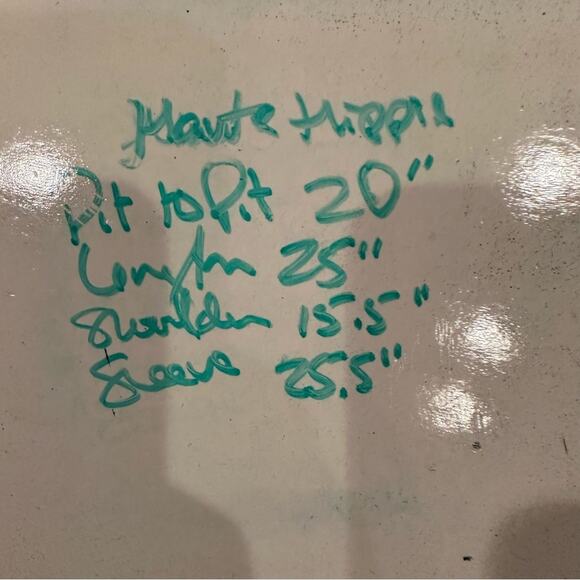 Haute Hippie
Pit to Pit 20"
Length 25"
Shoulder 15.5"
Sleeve 25.5"